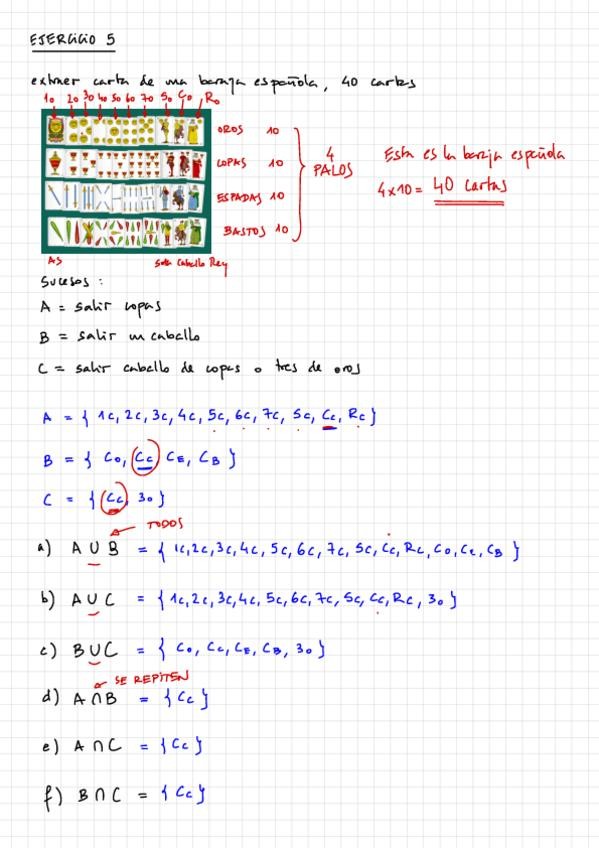 EJERCICIO 5
extraer carta de una baraja española, 40 cartas
1o 2o 3o 4o 5o 6o 7o So Co Ro
OROS 10
COPAS 10
ESPADAS 10
BASTOS 10
4 PALOS
Esta es la baraja española
4x10 = 40 cartas
AS
Sota Caballo Rey
Sucesos :
A = salir copas
B = salir un caballo
C = salir caballo de copas o tres de oros
A = { 1c, 2c, 3c, 4c, 5c, 6c, 7c, Sc, Cc, Rc }
B = { Co, Cc, CE, CB }
C = { Cc, 3o }
TODOS
a) A ∪ B = { 1c, 2c, 3c, 4c, 5c, 6c, 7c, Sc, Cc, Rc, Co, CE, CB }
b) A ∪ C = { 1c, 2c, 3c, 4c, 5c, 6c, 7c, Sc, Cc, Rc, 3o }
c) B ∪ C = { Co, Cc, CE, CB, 3o }
SE REPITEN
d) A ∩ B = { Cc }
e) A ∩ C = { Cc }
f) B ∩ C = { Cc }